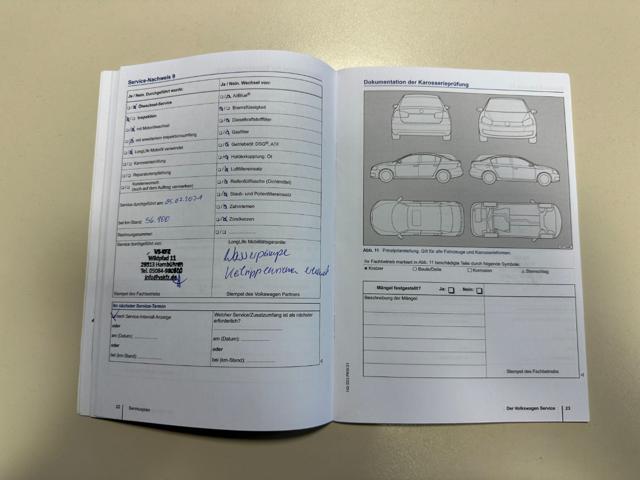 Service-Nachweis 9
Ja / Nein. Durchgeführt wurde:
Ölwechsel-Service
Inspektion
mit Motorölwechsel
mit erweitertem Inspektionsumfang
LongLife Motoröl verwendet
Karosserieprüfung
Reparaturempfehlung
(auch auf dem Auftrag vermerken)
Service durchgeführt am: 05.02.2021
bei km-Stand: 56.100
Rechnungsnummer:
Service durchgeführt von:
VS-KFZ
Wildpfad 11
29313 Hambühren
Stempel des Fachbetriebs
Ja / Nein. Wechsel von:
AdBlue®
Bremsflüssigkeit
Dieselkraftstofffilter
Gasfilter
Getriebeöl: DSG®,
Haldexkupplung: Öl
Luftfiltereinsatz
Reifenfüllflasche (Dichtmittel)
Staub- und Pollenfiltereinsatz
Zahnriemen
Zündkerzen
LongLife Mobilitätsgarantie:
Wasserpumpe
Stempel des Volkswagen Partners
Ihr nächster Service-Termin
nach Service-Intervall-Anzeige
oder
am (Datum):
oder
bei (km-Stand):
Welcher Service/Zusatzumfang ist als nächster
erforderlich?
am (Datum):
oder
bei (km-Stand):
22 Serviceplan
Dokumentation der Karosserieprüfung
Abb. 11 Prinzipdarstellung. Gilt für alle Fahrzeuge und Karosserieformen.
Ihr Fachbetrieb markiert in Abb. 11 beschädigte Teile durch folgende Symbole:
Kratzer Beule/Delle Korrosion Steinschlag
Mängel festgestellt? Ja: Nein:
Beschreibung der Mängel:
Stempel des Fachbetriebs
Der Volkswagen Service 23